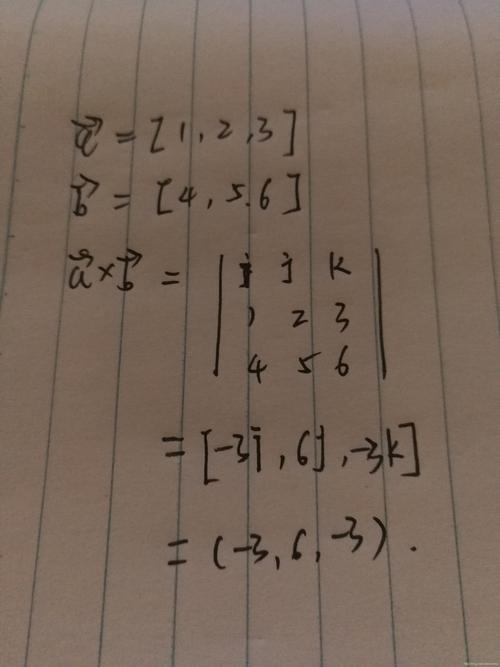 a⃗ = [1, 2, 3]
b⃗ = [4, 5.6]
a⃗ × b⃗ = | i j k |
1 2 3
4 5 6
= [-3i, 6j, -3k]
= (-3, 6, -3).